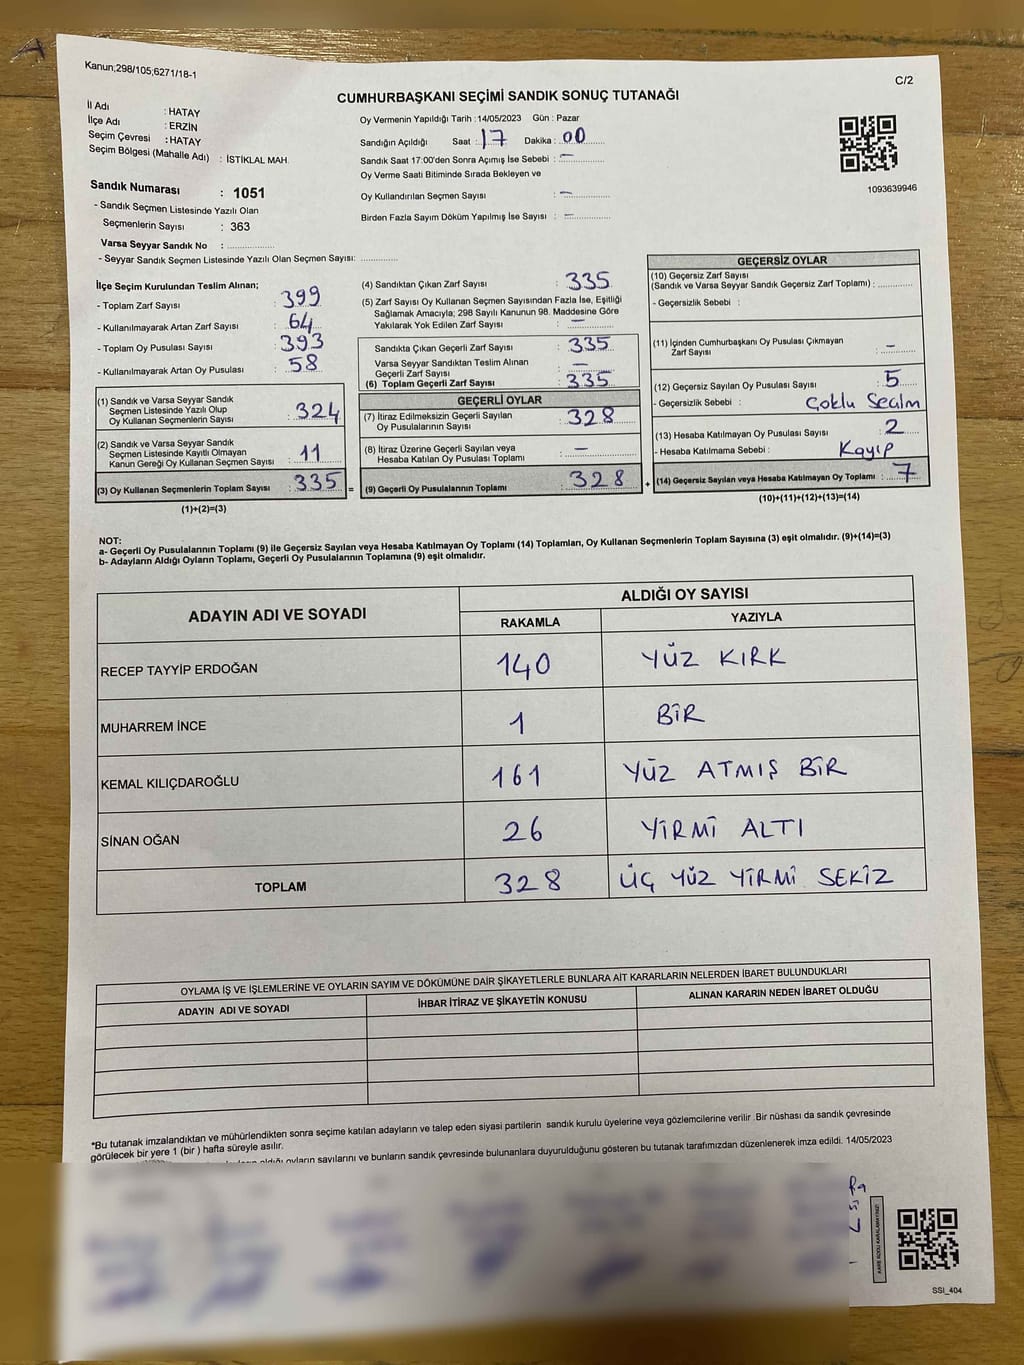 Kanun;298/105;6271/18-1
C/2
CUMHURBAŞKANI SEÇİMİ SANDIK SONUÇ TUTANAĞI
İl Adı : HATAY
İlçe Adı : ERZİN
Seçim Çevresi : HATAY
Seçim Bölgesi (Mahalle Adı) : İSTİKLAL MAH.
Sandık Numarası : 1051
- Sandık Seçmen Listesinde Yazılı Olan
Seçmenlerin Sayısı : 363
Varsa Seyyar Sandık No : ..............
- Seyyar Sandık Seçmen Listesinde Yazılı Olan Seçmen Sayısı: ............
Oy Vermenin Yapıldığı Tarih : 14/05/2023 Gün : Pazar
Sandığın Açıldığı Saat : 17 Dakika : 00
Sandık Saat 17:00'den Sonra Açımış İse Sebebi : —
Oy Verme Saati Bitiminde Sırada Bekleyen ve
Oy Kullandırılan Seçmen Sayısı : —
Birden Fazla Sayım Döküm Yapılmış İse Sayısı : —
1093639946
İlçe Seçim Kurulundan Teslim Alınan;
- Toplam Zarf Sayısı : 399
- Kullanılmayarak Artan Zarf Sayısı : 64
- Toplam Oy Pusulası Sayısı : 393
- Kullanılmayarak Artan Oy Pusulası : 58
(1) Sandık ve Varsa Seyyar Sandık
Seçmen Listesinde Yazılı Olup
Oy Kullanan Seçmenlerin Sayısı : 324
(2) Sandık ve Varsa Seyyar Sandık
Seçmen Listesinde Kayıtlı Olmayan
Kanun Gereği Oy Kullanan Seçmen Sayısı : 11
(3) Oy Kullanan Seçmenlerin Toplam Sayısı : 335 =
(1)+(2)=(3)
(4) Sandıktan Çıkan Zarf Sayısı : 335
(5) Zarf Sayısı Oy Kullanan Seçmen Sayısından Fazla İse, Eşitliği
Sağlamak Amacıyla; 298 Sayılı Kanunun 98. Maddesine Göre
Yakılarak Yok Edilen Zarf Sayısı : —
Sandıkta Çıkan Geçerli Zarf Sayısı : 335
Varsa Seyyar Sandıktan Teslim Alınan
Geçerli Zarf Sayısı : —
(6) Toplam Geçerli Zarf Sayısı : 335
GEÇERLİ OYLAR
(7) İtiraz Edilmeksizin Geçerli Sayılan
Oy Pusulalarının Sayısı : 328
(8) İtiraz Üzerine Geçerli Sayılan veya
Hesaba Katılan Oy Pusulası Toplamı : —
(9) Geçerli Oy Pusulalarının Toplamı : 328 +
GEÇERSİZ OYLAR
(10) Geçersiz Zarf Sayısı
(Sandık ve Varsa Seyyar Sandık Geçersiz Zarf Toplamı) : ............
- Geçersizlik Sebebi :
(11) İçinden Cumhurbaşkanı Oy Pusulası Çıkmayan
Zarf Sayısı : —
(12) Geçersiz Sayılan Oy Pusulası Sayısı : 5
- Geçersizlik Sebebi : Çoklu Seçim
(13) Hesaba Katılmayan Oy Pusulası Sayısı : 2
- Hesaba Katılmama Sebebi : Kayıp
(14) Geçersiz Sayılan veya Hesaba Katılmayan Oy Toplamı : 7
(10)+(11)+(12)+(13)=(14)
NOT:
a- Geçerli Oy Pusulalarının Toplamı (9) ile Geçersiz Sayılan veya Hesaba Katılmayan Oy Toplamı (14) Toplamları, Oy Kullanan Seçmenlerin Toplam Sayısına (3) eşit olmalıdır. (9)+(14)=(3)
b- Adayların Aldığı Oyların Toplamı, Geçerli Oy Pusulalarının Toplamına (9) eşit olmalıdır.
ADAYIN ADI VE SOYADI
ALDIĞI OY SAYISI
RAKAMLA YAZIYLA
RECEP TAYYİP ERDOĞAN 140 YÜZ KIRK
MUHARREM İNCE 1 BİR
KEMAL KILIÇDAROĞLU 161 YÜZ ATMIŞ BİR
SİNAN OĞAN 26 YİRMİ ALTI
TOPLAM 328 ÜÇ YÜZ YİRMİ SEKİZ
OYLAMA İŞ VE İŞLEMLERİNE VE OYLARIN SAYIM VE DÖKÜMÜNE DAİR ŞİKAYETLERLE BUNLARA AİT KARARLARIN NELERDEN İBARET BULUNDUKLARI
ADAYIN ADI VE SOYADI İHBAR İTİRAZ VE ŞİKAYETİN KONUSU ALINAN KARARIN NEDEN İBARET OLDUĞU
*Bu tutanak imzalandıktan ve mühürlendikten sonra seçime katılan adayların ve talep eden siyasi partilerin sandık kurulu üyelerine veya gözlemcilerine verilir .Bir nüshası da sandık çevresinde
görülecek bir yere 1 (bir ) hafta süreyle asılır.
aldığı oyların sayılarını ve bunların sandık çevresinde bulunanlara duyurulduğunu gösteren bu tutanak tarafımızdan düzenlenerek imza edildi. 14/05/2023
KARE KODU KARALAMAYINIZ!
SSI_404